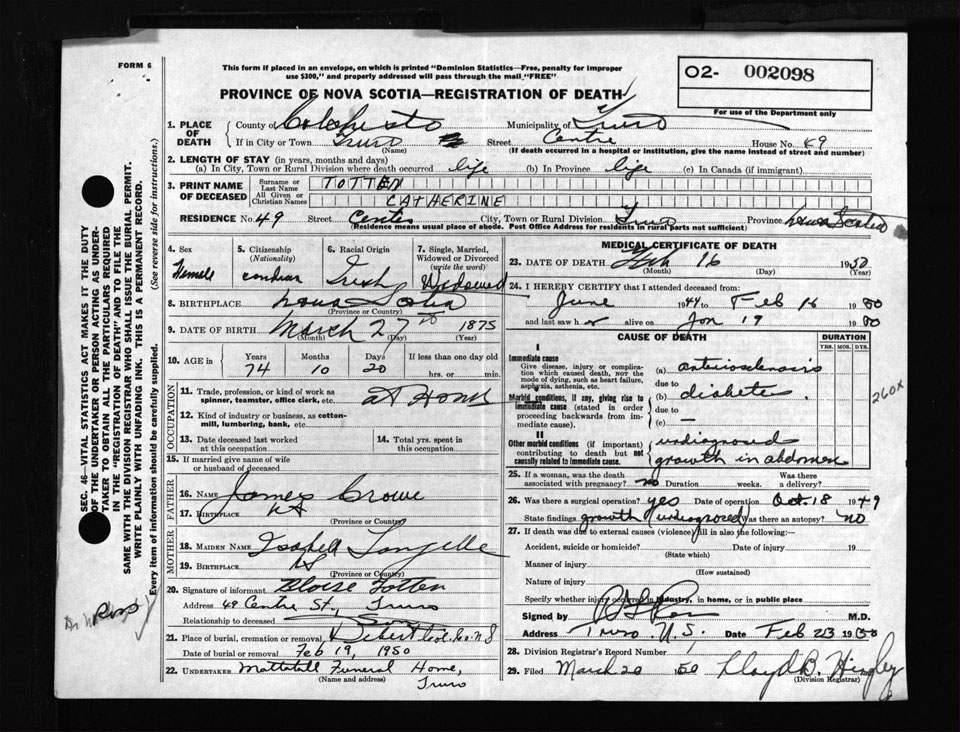 FORM 6
This form if placed in an envelope, on which is printed "Dominion Statistics—Free, penalty for improper
use $300," and properly addressed will pass through the mail "FREE"
O2- 002098
For use of the Department only
PROVINCE OF NOVA SCOTIA—REGISTRATION OF DEATH
1. PLACE OF DEATH
County of Municipality of Truro
If in City or Town Truro (Name) Street Centre House No. 49
(If death occurred in a hospital or institution, give the name instead of street and number)
2. LENGTH OF STAY (in years, months and days)
(a) In City, Town or Rural Division where death occurred life (b) In Province life (c) In Canada (if immigrant)
3. PRINT NAME OF DECEASED
Surname or Last Name TOTTEN
All Given or Christian Names CATHERINE
RESIDENCE No. 49 Street Centre City, Town or Rural Division Truro Province Nova Scotia
(Residence means usual place of abode. Post Office Address for residents in rural parts not sufficient)
4. Sex Female
5. Citizenship (Nationality)
6. Racial Origin Irish
7. Single, Married, Widowed or Divorced (write the word) Widowed
8. BIRTHPLACE Nova Scotia
(Province or Country)
9. DATE OF BIRTH March 27th 1875
(Month) (Day) (Year)
10. AGE in Years 74 Months 10 Days 20 If less than one day old hrs. or min.
OCCUPATION
11. Trade, profession, or kind of work as spinner, teamster, office clerk, etc. At Home
12. Kind of industry or business, as cotton-mill, lumbering, bank, etc.
13. Date deceased last worked at this occupation
14. Total yrs. spent in this occupation
15. If married give name of wife or husband of deceased
FATHER
16. NAME James Crowe
17. BIRTHPLACE NS
(Province or Country)
MOTHER
18. MAIDEN NAME Isabell
19. BIRTHPLACE NS
(Province or Country)
20. Signature of informant Totten
Address 49 Centre St., Truro
Relationship to deceased Son
21. Place of burial, cremation or removal Debert Col. Co. N S
Date of burial or removal Feb 19, 1950
22. UNDERTAKER Mattatall Funeral Home,
(Name and address) Truro
MEDICAL CERTIFICATE OF DEATH
23. DATE OF DEATH Feb 16 1950
(Month) (Day) (Year)
24. I HEREBY CERTIFY that I attended deceased from:
June 1944 to Feb 16 1950
and last saw her alive on Jan 19 1950
CAUSE OF DEATH
DURATION
YRS. MOS. DYS.
I
Immediate cause
Give disease, injury or complication which caused death, NOT the mode of dying, such as heart failure, asphyxia, asthenia, etc.
(a) arteriosclerosis
due to
Morbid conditions, if any, giving rise to immediate cause (stated in order proceeding backwards from immediate cause).
(b) diabetes.
due to
(c) —
260X
II
Other morbid conditions (if important) contributing to death but not causally related to immediate cause.
undiagnosed
growth in abdomen
25. If a woman, was the death associated with pregnancy? no Duration weeks. Was there a delivery?
26. Was there a surgical operation? yes Date of operation Oct. 18 1949
State findings growth (undiagnosed) Was there an autopsy? no
27. If death was due to external causes (violence) fill in also the following:
Accident, suicide or homicide? Date of injury 19
(State which)
Manner of injury
(How sustained)
Nature of injury
Specify whether injury occurred in industry, in home, or in public place
Signed by M.D.
Address Truro N.S. Date Feb 23 1950
28. Division Registrar's Record Number
29. Filed March 20 50 Lloyd B. Hingley
(Division Registrar)
SEC. 46—VITAL STATISTICS ACT MAKES IT THE DUTY
OF THE UNDERTAKER OR PERSON ACTING AS UNDER-
TAKER TO OBTAIN ALL THE PARTICULARS REQUIRED
IN THE "REGISTRATION OF DEATH" AND TO FILE THE
SAME WITH THE DIVISION REGISTRAR WHO SHALL ISSUE THE BURIAL PERMIT.
WRITE PLAINLY WITH UNFADING INK. THIS IS A PERMANENT RECORD.
Every item of information should be carefully supplied. (See reverse side for instructions.)